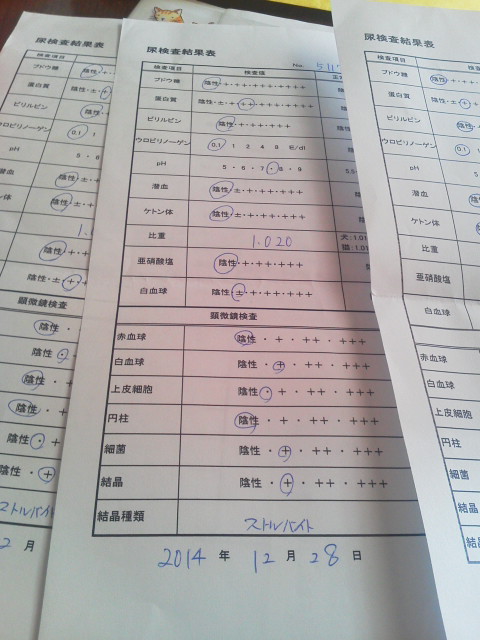 尿検査結果表
検査項目 検査値
No.
ブドウ糖 陰性・+・++・+++・++++
蛋白質 陰性・±・+・++・+++・++++
ビリルビン 陰性・+・++・+++
ウロビリノーゲン 0.1 1 2 4 8 E/dl
pH 5・6・7・8・9
潜血 陰性・±・+・++・+++
ケトン体 陰性・±・+・++・+++
比重 1.020
亜硝酸塩 陰性・+・++・+++
白血球 陰性・±・+・++・+++
顕微鏡検査
赤血球 陰性・+・++・+++
白血球 陰性・+・++・+++
上皮細胞 陰性・+・++・+++
円柱 陰性・+・++・+++
細菌 陰性・+・++・+++
結晶 陰性・+・++・+++
結晶種類 ストルバイト
2014 年 12 月 28 日
尿検査結果表
検査項目
ブドウ糖 陰性
蛋白質 陰性・±・+
ビリルビン 陰性
ウロビリノーゲン 0.1 1
pH 5・6
潜血 陰性・±
陰性・±
陰性・+
陰性・±・+
顕微鏡検査
陰性・
陰性・
陰性・
陰性・
陰性・+
陰性・+
ストルバイト
2 月
尿検査結果表
検査項目
ブドウ糖 陰性・+・++
蛋白質 陰性・±・+
ビリルビン 陰性
ウロビリノーゲン 0.1 1
pH 5
潜血
ケトン体
比重
亜硝酸塩
白血球
赤血球
白血球
上皮細胞
円柱
細菌
結晶